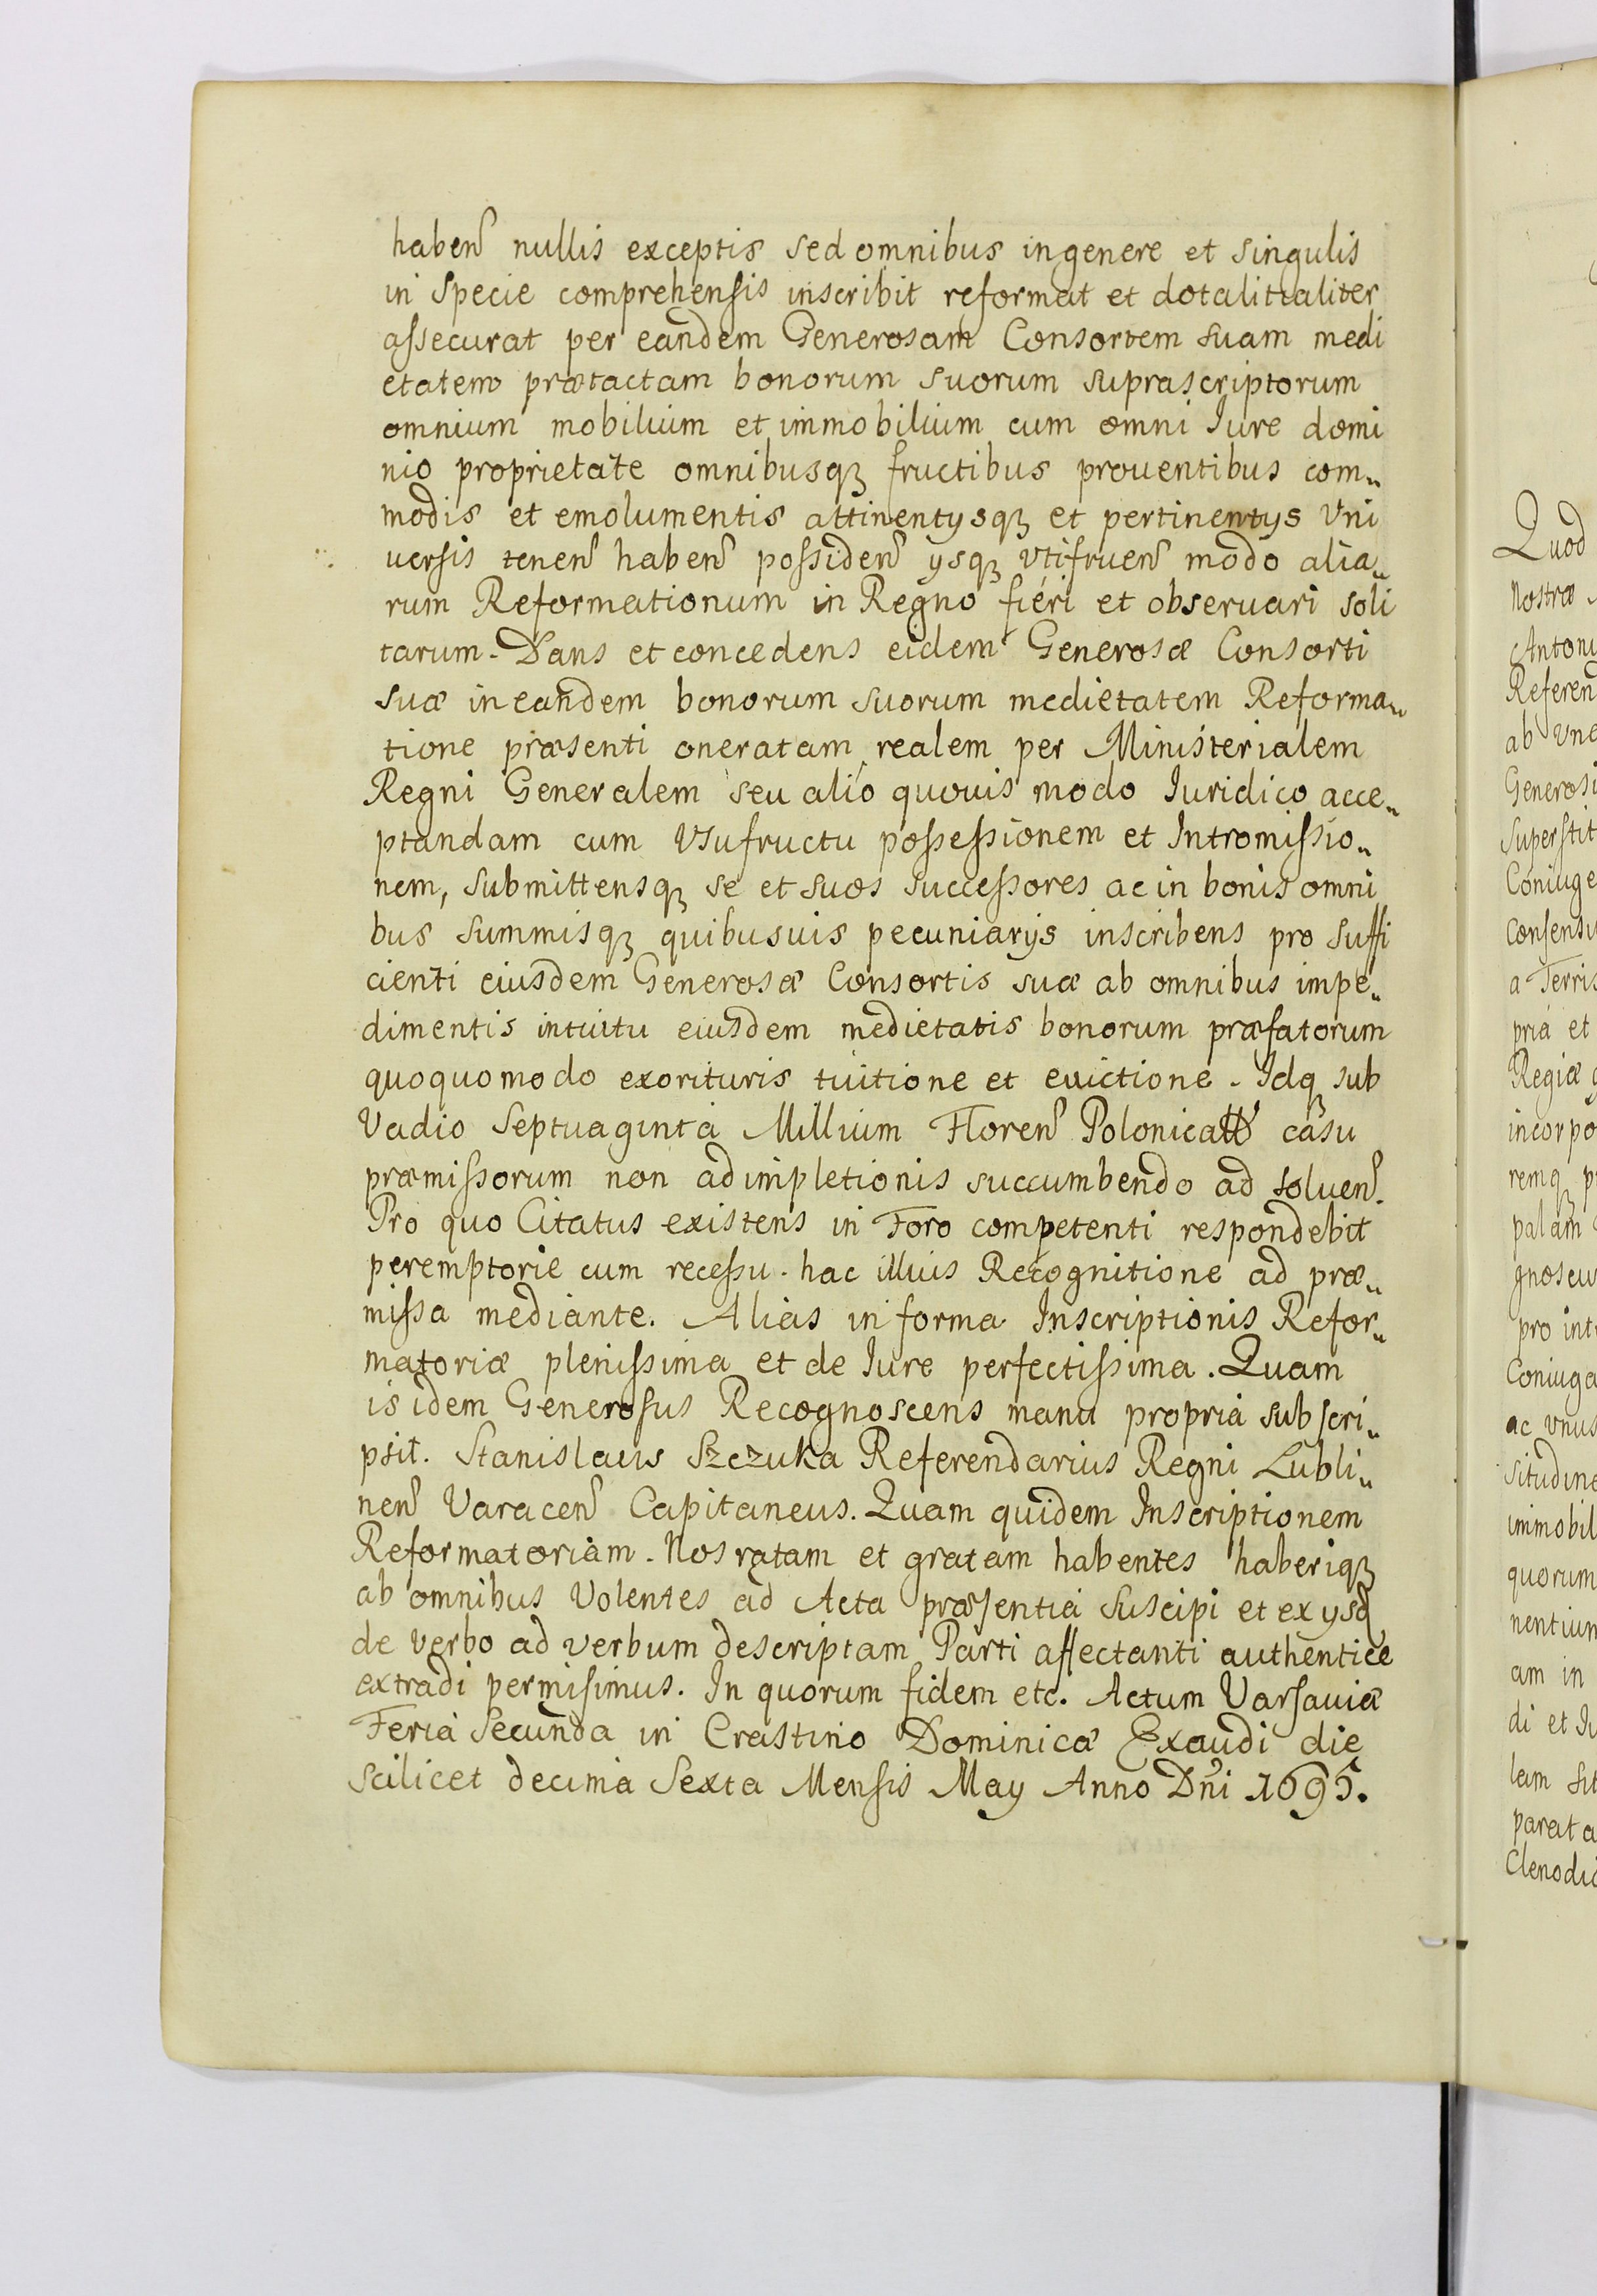 haben̄ nullis exceptis sed omnibus in genere et singulis
in Specie comprehensis inscribit reformat et dotalitialiter
assecurat per eandem Generosam Consortem suam medi
etatem prætactam bonorum suorum suprascriptorum
omnium mobilium et immobilium cum omni Iure domi
nio proprietate omnibusqꝫ fructibus prouentibus com„
modis et emolumentis attinentysqꝫ et pertinentys Vni
uersis tenen̄ haben̄ possiden̄ ysqꝫ vtifruen̄ modo alia„
rum Reformationum in Regno fieri et obseruari soli
tarum. Dans et concedens eidem Generosæ Consorti
suæ in eandem bonorum suorum medietatem Reforma„
tione præsenti oneratam realem per Ministerialem
Regni Generalem seu alio quouis modo Iuridico acce„
ptandam cum Vsufructu possessionem et Intromissio„
nem, submittensqꝫ se et suos successores ac in bonis omni
bus summisqꝫ quibusuis pecuniarijs inscribens pro suffi
cienti eiusdem Generosæ Consortis suæ ab omnibus impe„
dimentis intuitu eiusdem medietatis bonorum præfatorum
quoquomodo exorituris tuitione et euictione. Idqꝫ sub
Vadio Septuaginta Millium Floren̄ Polonical̄ casu
præmissorum non adimpletionis succumbendo ad soluen̄.
Pro quo Citatus existens in Foro competenti respondebit
peremptorie cum recessu. hac illius Recognitione ad præ„
missa mediante. Alias in forma Inscriptionis Refor„
matoriæ plenissima et de Iure perfectissima. Quam
is idem Generosus Recognoscens manu propria subscri„
psit. Stanislaus Szczuka Referendarius Regni Lubli„
nen̄ Varacen̄ Capitaneus. Quam quidem Inscriptionem
Reformatoriam. Nos ratam et gratam habentes haberiqꝫ
ab omnibus Volentes ad Acta præsentia suscipi et ex ysdꝫ
de verbo ad verbum descriptam Parti affectanti authentice
extradi permisimus. In quorum fidem etc. Actum Varsauiæ
Feria Secunda in Crastino Dominicæ Exaudi die
scilicet decima Sexta Mensis May Anno Dn̄i 1695.
Quod
Nostræ
Antony
Referen
ab Vne
Generosi
superstit
Coniuge
Consensu
a Terris
pria et
Regiæ
incorpo
remqꝫ
palam
gnoscu
pro int
Coniuga
ac vnus
situdine
immobil
quorum
nentium
am in
di et Iu
lam sit
parata
Clenodi